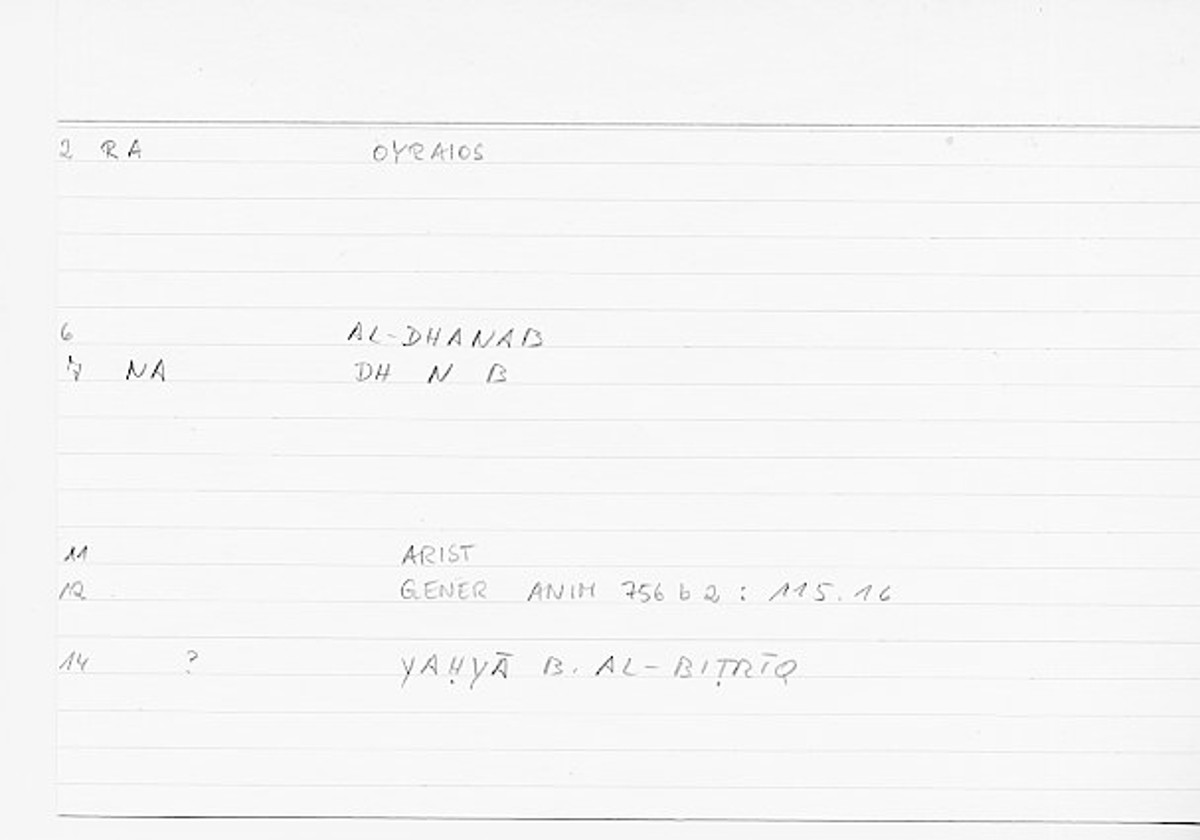 2 RA OYRAIOS
6 AL-DHANAB
7 NA DH N B
11 ARIST
12 GENER ANIM 756 b 2 : 115.16
14 ? YAḤYĀ B. AL-BIṬRĪQ